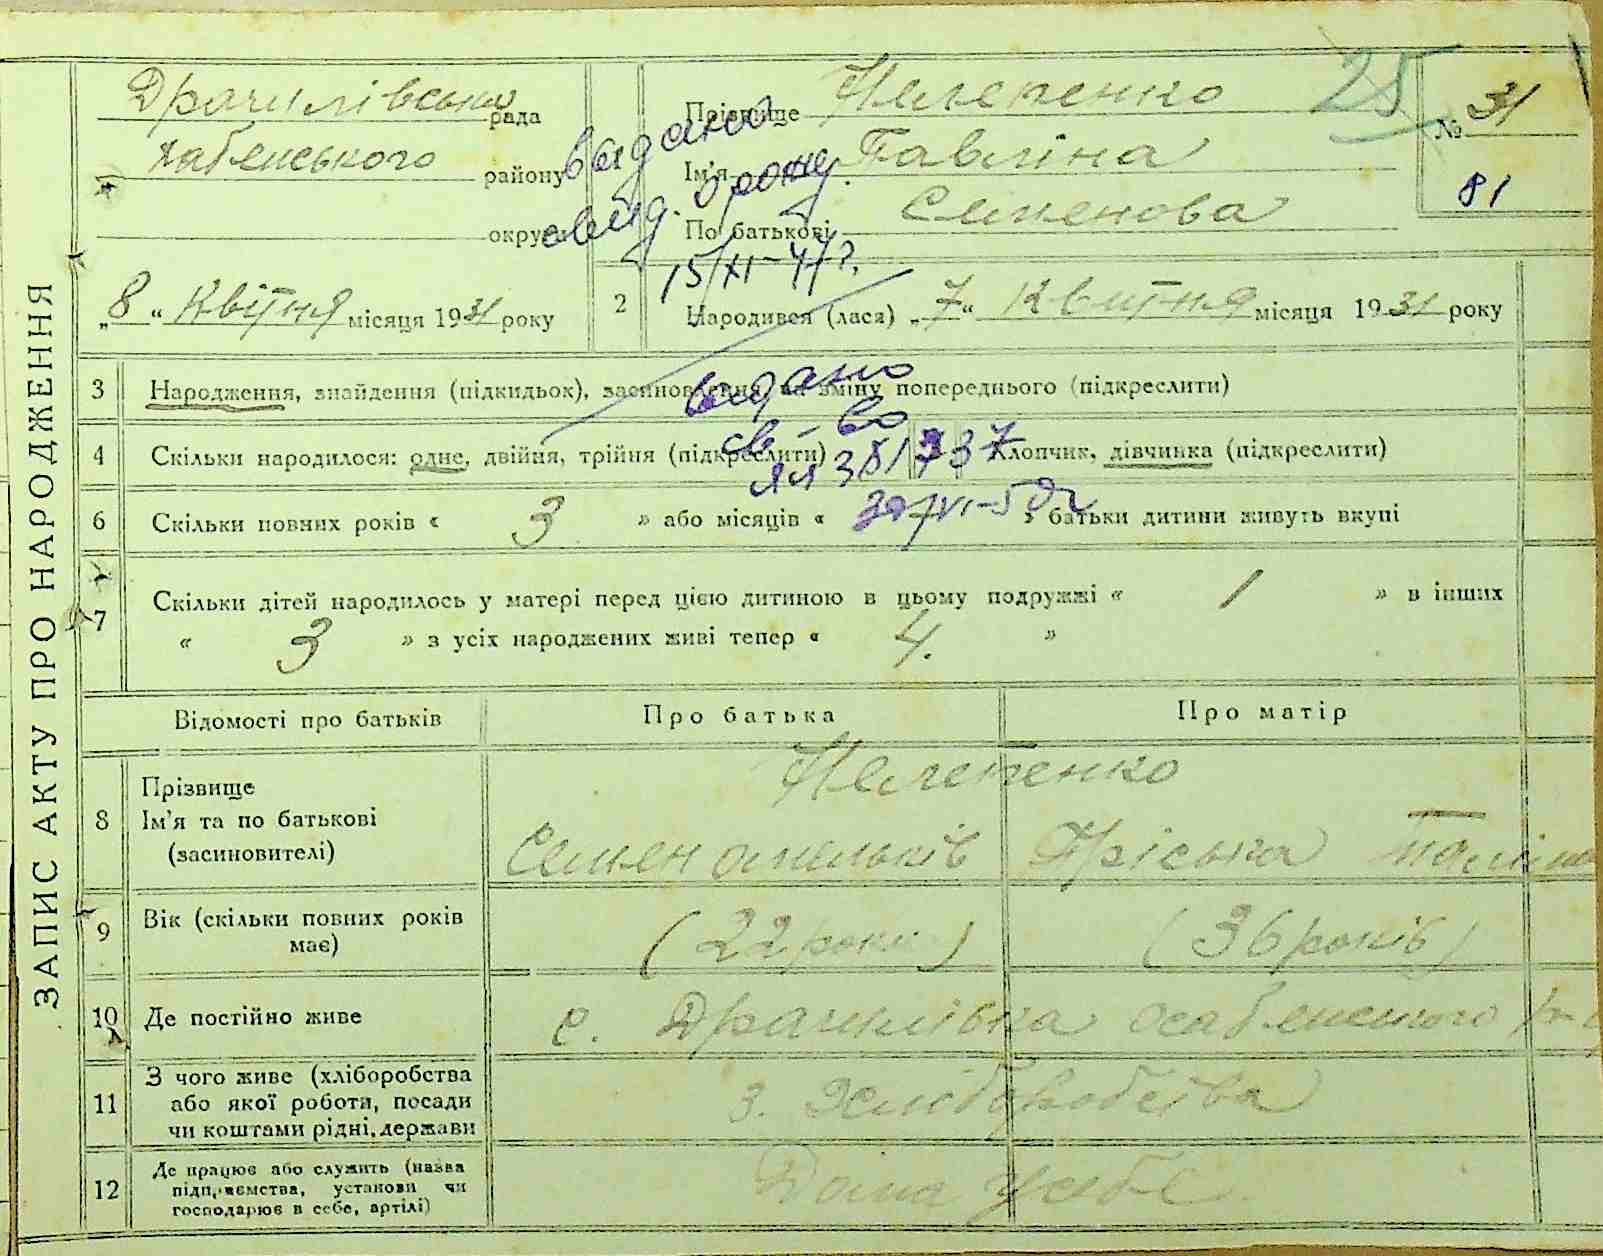 ЗАПИС АКТУ ПРО НАРОДЖЕННЯ
рада
Хабенського району
округи
„8“ Квітня місяця 1931 року
Прізвище Нелепенко
Ім'я Павліна
По батькові Семенова
25
№ 31
81
видано
свид. 3 рожд.
15/XI-47 г.
2 Народився (лася) „7“ Квітня місяця 1931 року
3 Народження, знайдення (підкидьок), засиновлення, на зміну попереднього (підкреслити)
видано
св-во
4 Скільки народилося: одне, двійня, трійня (підкреслити) Хлопчик, дівчинка (підкреслити)
6 Скільки повних років « 3 » або місяців « » батьки дитини живуть вкупі
7 Скільки дітей народилось у матері перед цією дитиною в цьому подружжі « 1 » в інших
« 3 » з усіх народжених живі тепер « 4. »
Відомості про батьків Про батька Про матір
8 Прізвище
Ім'я та по батькові
(засиновителі)
Нелепенко
Семен омельків Пріська
9 Вік (скільки повних років має) (22 роки) (36 років)
10 Де постійно живе с. Драчилівка хабенського
11 З чого живе (хліборобства
або якої роботи, посади
чи коштами рідні, держави
З. Хліборобства
12 Де працює або служить (назва
підприємства, установи чи
господарює в себе, артілі)
Дома у себе